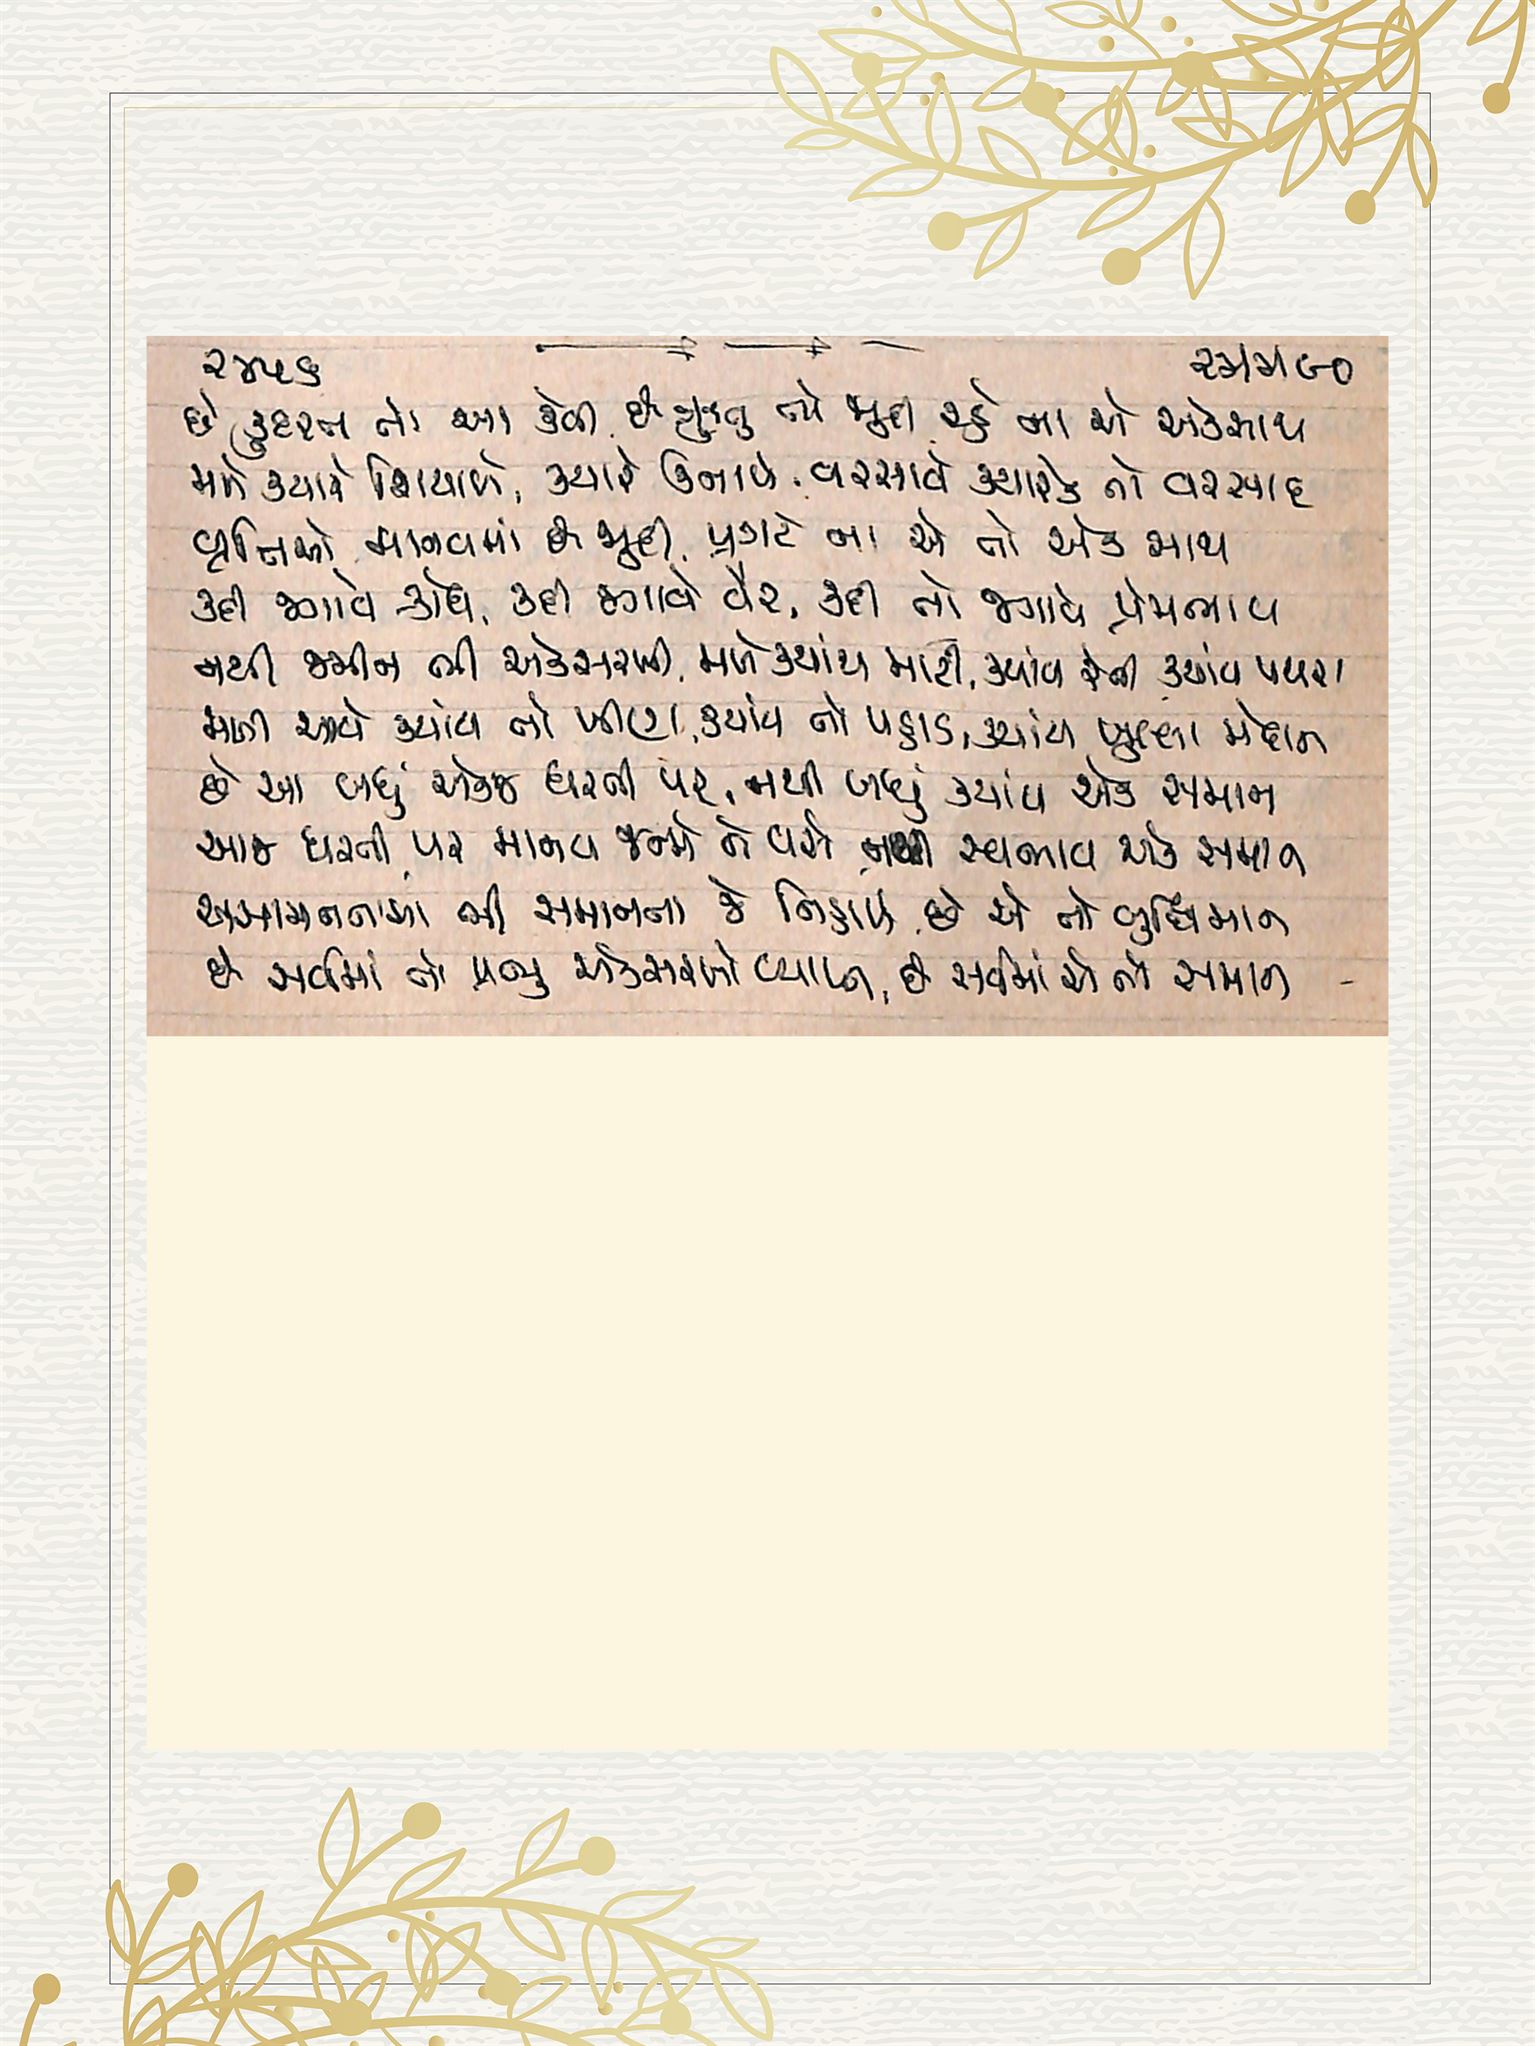 છે કુદરત તો આ કેવી, છે ઋતુ તો જુદી, રહે ના એ એકસાથ
મળે ક્યારે શિયાળો, ક્યારે ઉનાળો, વરસાવે ક્યારેક તો વરસાદ
વૃત્તિઓ માનવમાં છે જુદી, પ્રગટે ના એ તો એક સાથ
કદી જગાવે ક્રોધ, કદી જગાવે વૈર, કદી તો જગાવે પ્રેમભાવ
નથી જમીન ભી એકસરખી, મળે ક્યાંય માટી, ક્યાંય રેતી ક્યાંય પથરા
મળી આવે ક્યાંય તો ખીણ, ક્યાંય તો પહાડ, ક્યાંય ખુલ્લા મેદાન
છે આ બધું એકજ ધરતી પર, નથી બધું ક્યાંય એક સમાન
આજ ધરતી પર માનવ જન્મે ને વસે નથી સ્વભાવ એક સમાન
અસમાનતામાં ભી સમાનતા જે નિહાળે, છે એ તો બુદ્ધિમાન
છે સર્વમાં તો પ્રભુ એકસરખો વ્યાપ્ત, છે સર્વમાં એ તો સમાન -